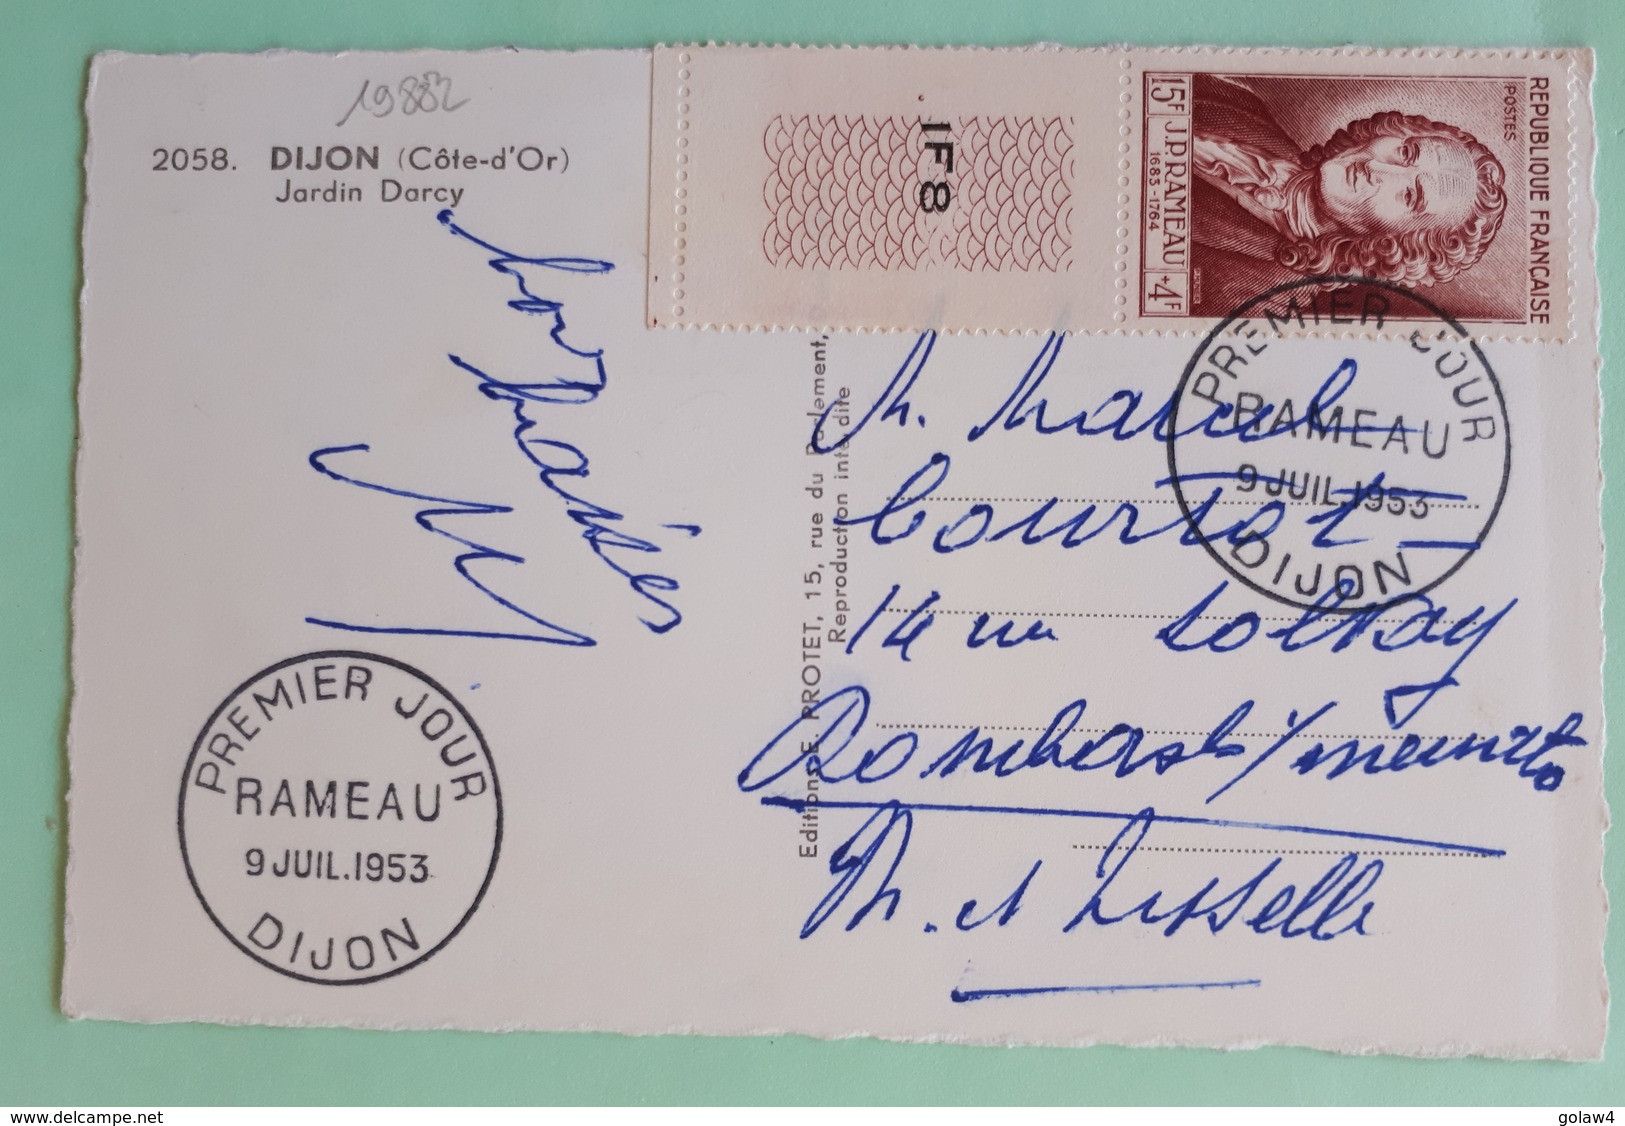 19882
2058. DIJON (Côte-d'Or)
Jardin Darcy
bons baisers
PREMIER JOUR
RAMEAU
9 JUIL. 1953
DIJON
1F8
REPUBLIQUE FRANÇAISE
POSTES
15F J.P. RAMEAU +4F
1683-1764
PREMIER JOUR
RAMEAU
9 JUIL. 1953
DIJON
Editions E. PROTET, 15, rue du Parlement,
Reproduction interdite
M. Marcel
Courtot
14 rue Solvay
M. et Moselle
www.delcampe.net
golaw4